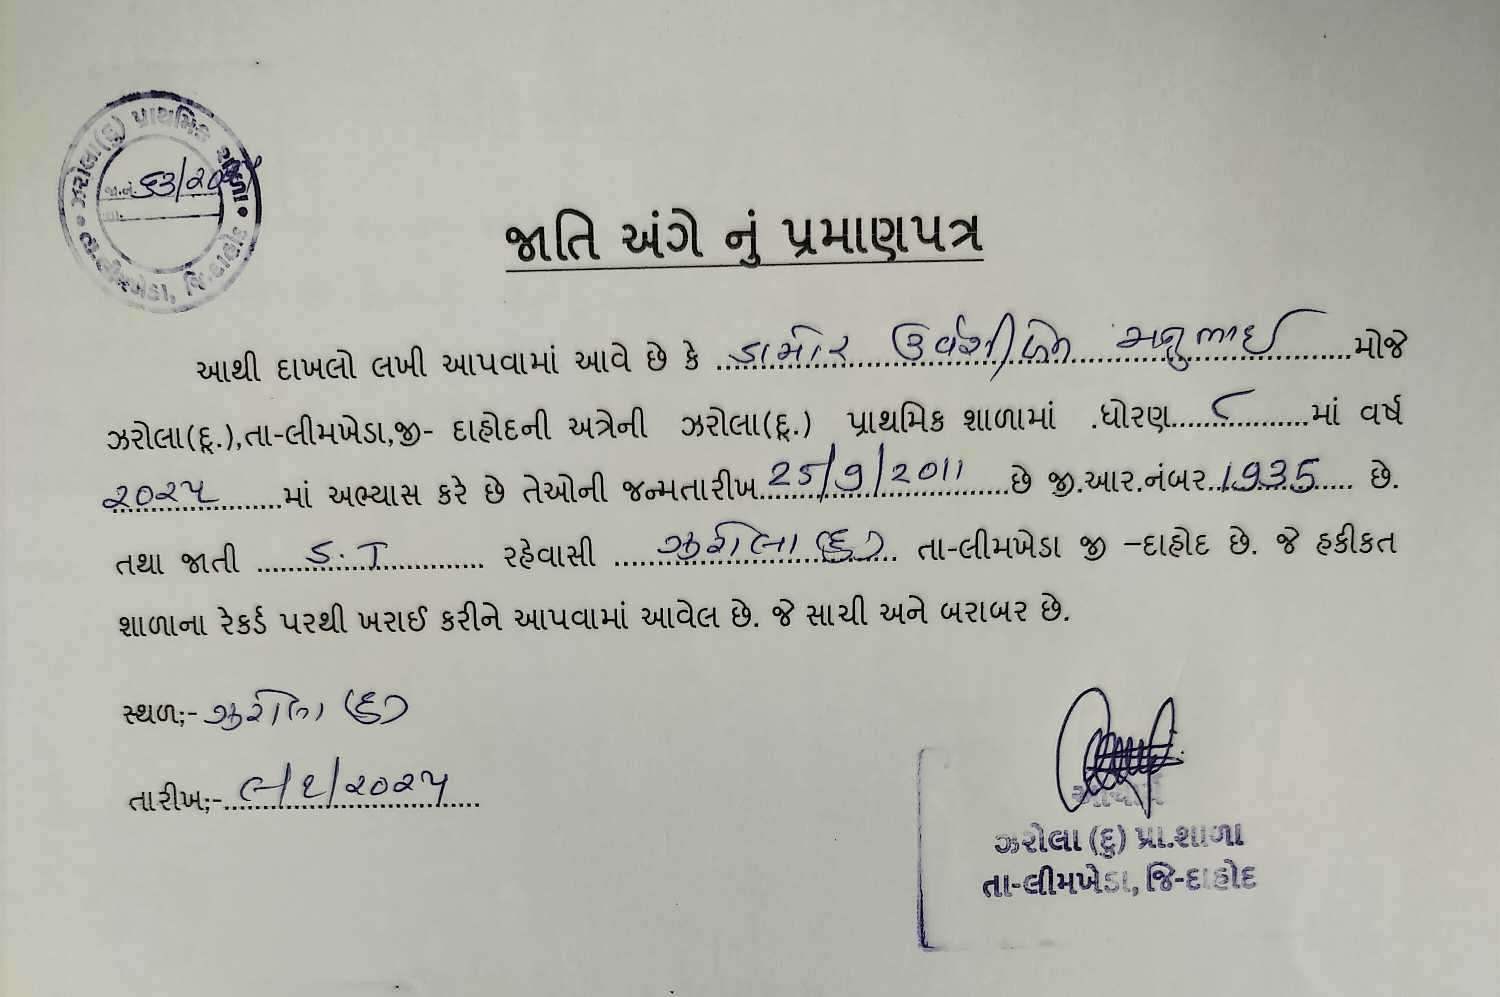 ઝરોલા(દુ) પ્રાથમિક શાળા
જા.નં. ૬૩/૨૦૨૫
તા.
તા.લીમખેડા, જિ.દાહોદ
જાતિ અંગે નું પ્રમાણપત્ર
આથી દાખલો લખી આપવામાં આવે છે કે ડામોર ઉર્વશીબેન મનુભાઇ મોજે
ઝરોલા(દૂ.),તા-લીમખેડા,જી- દાહોદની અત્રેની ઝરોલા(દૂ.) પ્રાથમિક શાળામાં .ધોરણ ૮ માં વર્ષ
૨૦૨૫ માં અભ્યાસ કરે છે તેઓની જન્મતારીખ 25/9/2011 છે જી.આર.નંબર 1935 છે.
તથા જાતી S.T રહેવાસી ઝરોલા (દુ) તા-લીમખેડા જી –દાહોદ છે. જે હકીકત
શાળાના રેકર્ડ પરથી ખરાઈ કરીને આપવામાં આવેલ છે. જે સાચી અને બરાબર છે.
સ્થળ;- ઝરોલા (દુ)
તારીખ;- ૯/૬/૨૦૨૫
આચાર્ય
ઝરોલા (દુ) પ્રા.શાળા
તા-લીમખેડા, જિ-દાહોદ